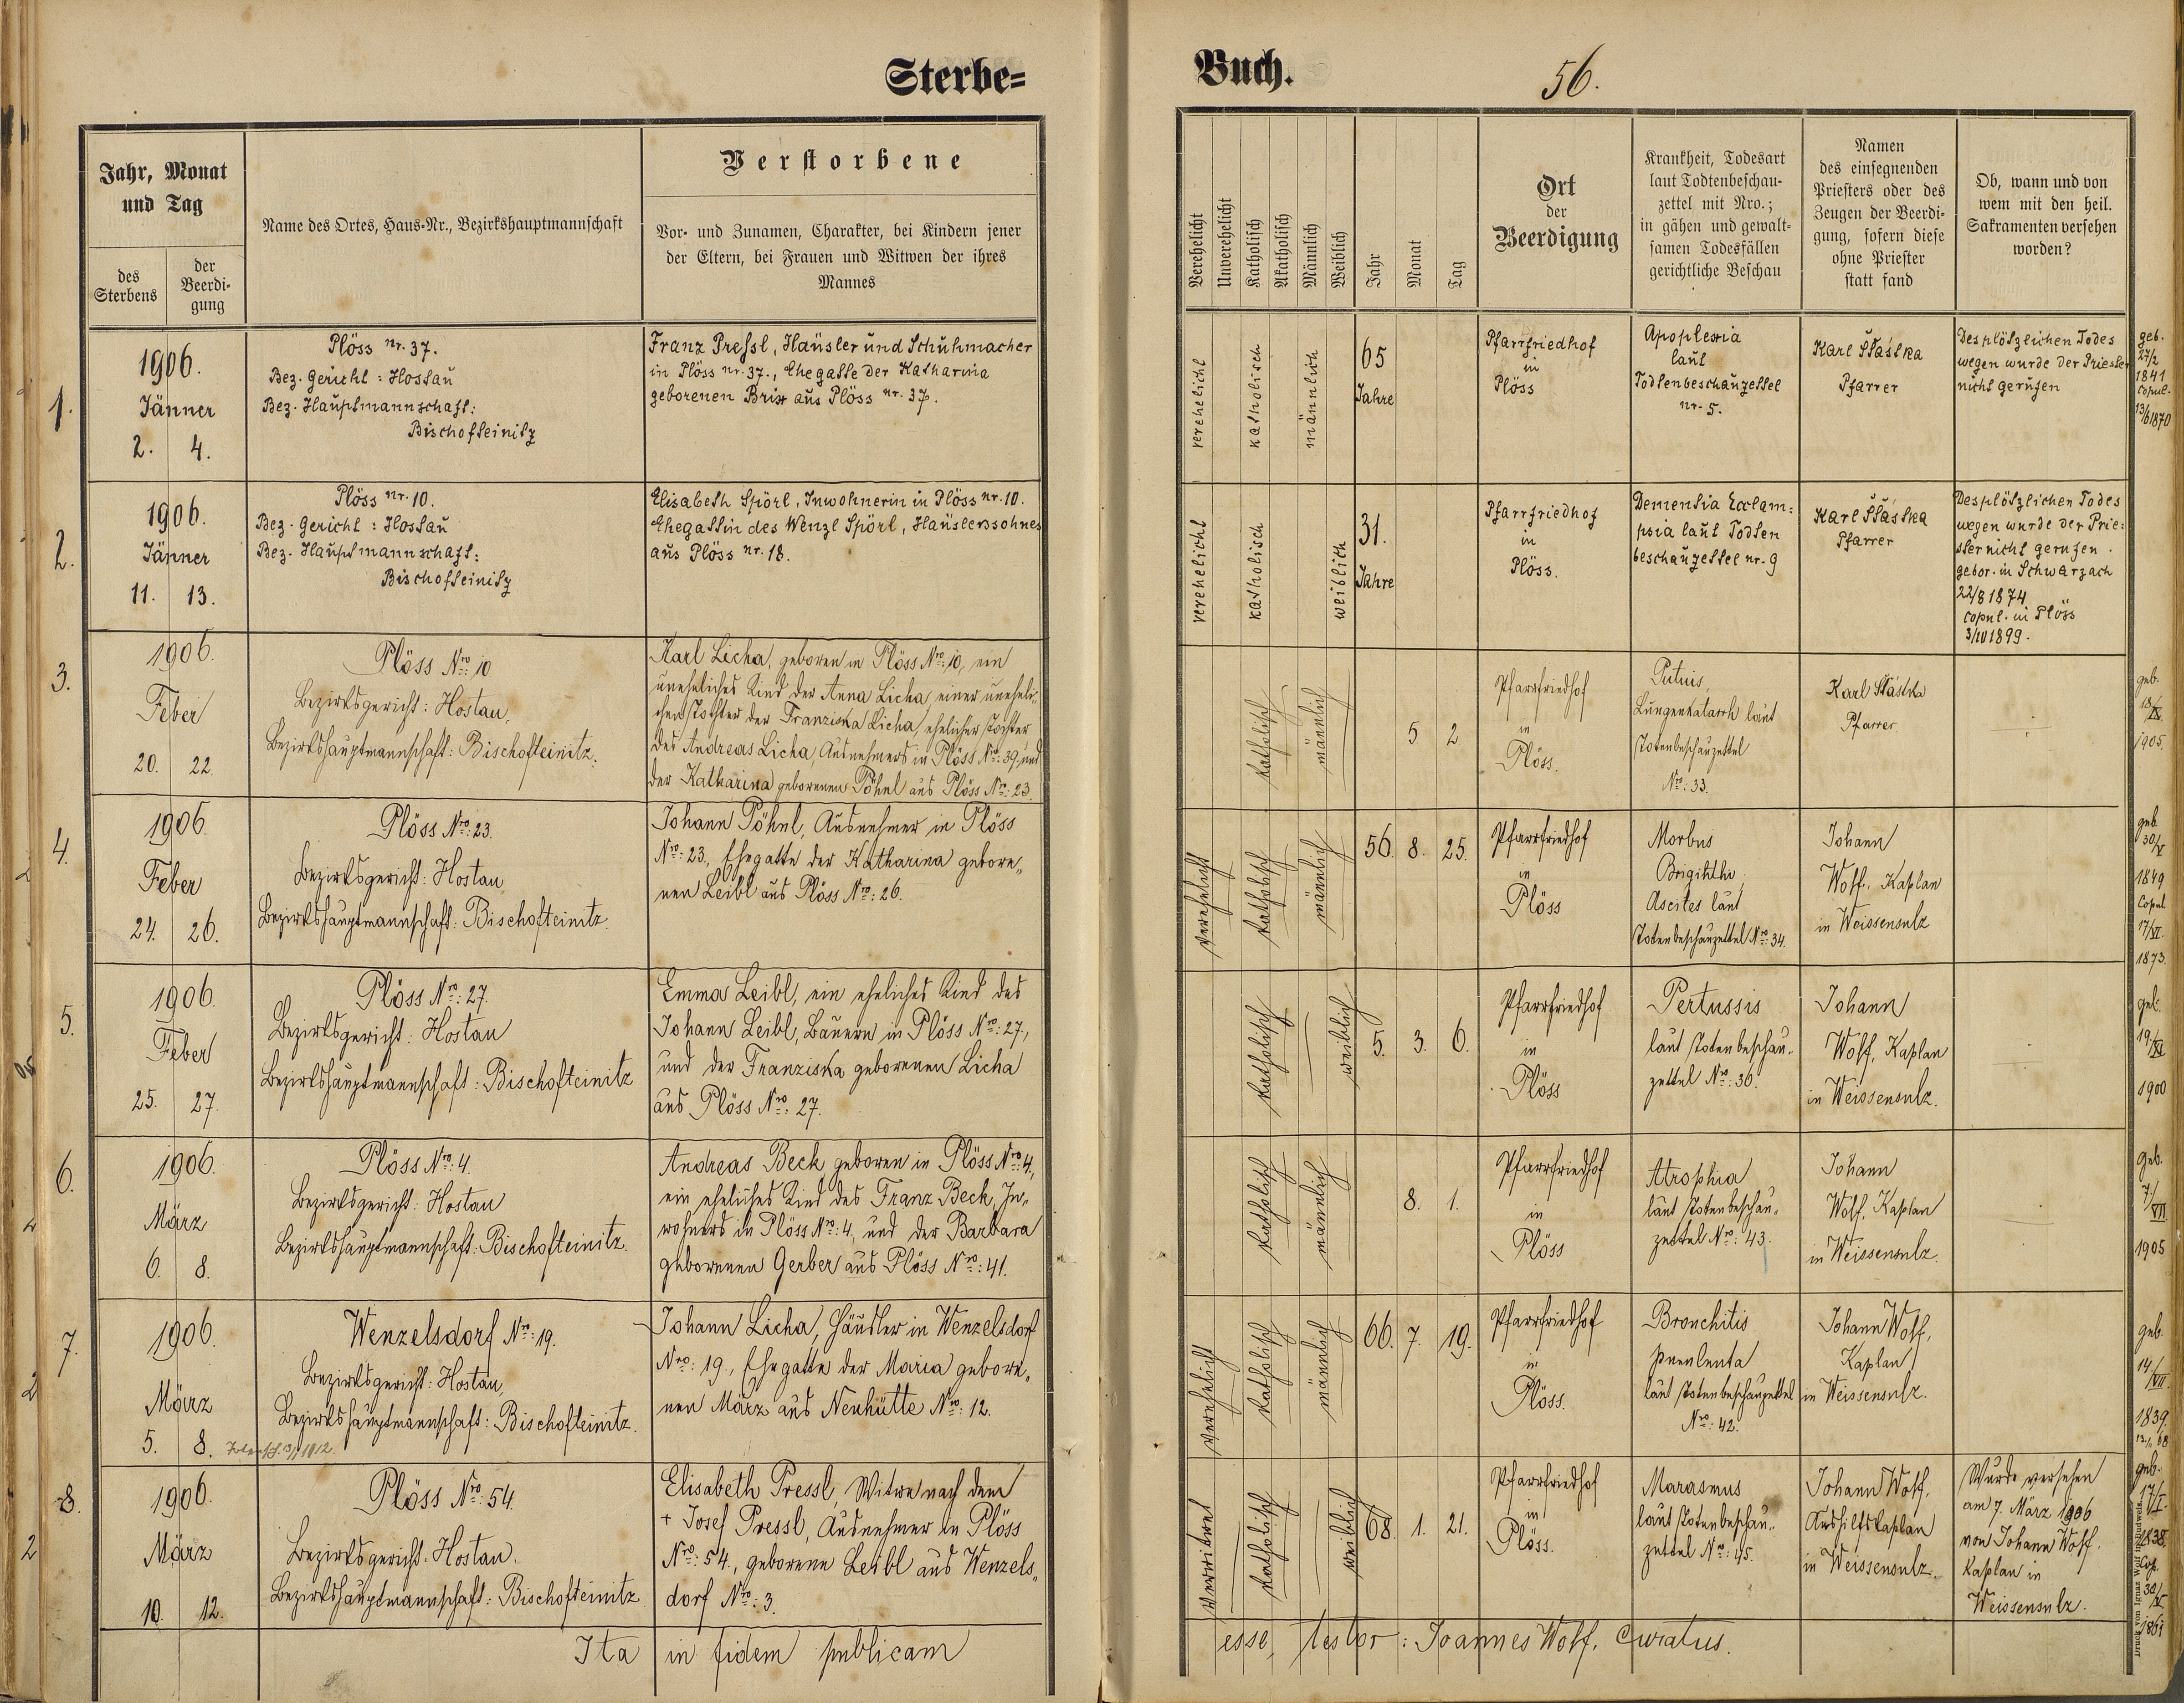 Sterbe=
Buch.
56.
Jahr, Monat
und Tag
des
Sterbens
der
Beerdi-
gung
Name des Ortes, Haus-Nr., Bezirkshauptmannschaft
Verstorbene
Vor- und Zunamen, Charakter, bei Kindern jener
der Eltern, bei Frauen und Witwen der ihres
Mannes
Verehelicht
Unverehelicht
Katholisch
Akatholisch
Männlich
Weiblich
Jahr
Monat
Tag
Ort
der
Beerdigung
Krankheit, Todesart
laut Todtenbeschau-
zettel mit Nro.;
in gähen und gewalt-
samen Todesfällen
gerichtliche Beschau
Namen
des einsegnenden
Priesters oder des
Zeugen der Beerdi-
gung, sofern diese
ohne Priester
statt fand
Ob, wann und von
wem mit den heil.
Sakramenten versehen
worden?
1.
1906.
Jänner
2. 4.
Plöss nr. 37.
Bez. Gericht: Hostau
Bez. Hauptmannschaft:
Bischofteinitz
Franz Pressl, Häusler und Schuhmacher
in Plöss nr. 37., Ehegatte der Katharina
geborenen Brix aus Plöss nr. 37.
verehelicht
katholisch
männlich
65
Jahre
Pfarrfriedhof
in
Plöss
Apoplexia
laut
Todtenbeschauzettel
nr. 5.
Karl Šťástka
Pfarrer
Des plötzlichen Todes
wegen wurde der Priester
nicht gerufen
geb.
27/2
1841
copul.
13/6 1870
2.
1906.
Jänner
11. 13.
Plöss nr. 10.
Bez. Gericht: Hostau
Bez. Hauptmannschaft:
Bischofteinitz
Elisabeth Spörl, Inwohnerin in Plöss nr. 10.
Ehegattin des Wenzl Spörl, Häuslerssohnes
aus Plöss nr. 18.
verehelicht
katholisch
weiblich
31.
Jahre
Pfarrfriedhof
in
Plöss.
Dementia Ecclam=
psia laut Todten
beschauzettel nr. 9
Karl Šťástka
Pfarrer
Des plötzlichen Todes
wegen wurde der Prie=
ster nicht gerufen.
gebor. in Schwarzach
22/8 1874
copul. in Plöss
3/10 1899.
3.
1906.
Feber
20. 22.
Plöss Nro: 10
Bezirksgericht: Hostau,
Bezirkshauptmannschaft: Bischofteinitz.
Karl Licha, geboren in Plöss Nro: 10, ein
uneheliches Kind der Anna Licha, einer uneheli-
chen Tochter der Franziska Licha, ehelicher Tochter
des Andreas Licha, Ausnehmers in Plöss Nro: 39, und
der Katharina geborenen Pöhnl aus Plöss Nro: 23.
katholisch
männlich
5 2
Pfarrfriedhof
in
Plöss.
Lungenkatarrh laut
Totenbeschauzettel
Nro: 33.
Karl Šťástka
Pfarrer
geb.
18/IX.
1905.
4.
1906.
Feber
24. 26.
Plöss Nro: 23.
Bezirksgericht: Hostau
Bezirkshauptmannschaft: Bischofteinitz.
Johann Pöhnl, Ausnehmer in Plöss
Nro: 23., Ehegatte der Katharina gebore„
nen Leibl aus Plöss Nro: 26.
verehelicht
katholisch
männlich
56. 8. 25.
Pfarrfriedhof
in
Plöss
Morbus
Brigihthi,
Ascites laut
Totenbeschauzettel Nro: 34.
Johann
Wolf, Kaplan
in Weissensulz
geb.
30/V.
1849
Copul.
17/VI.
1873.
5.
1906.
Feber
25. 27.
Plöss Nro: 27.
Bezirksgericht: Hostau
Bezirkshauptmannschaft: Bischofteinitz
Emma Leibl, ein eheliches Kind des
Johann Leibl, Bauern in Plöss Nro: 27,
und der Franziska geborenen Licha
aus Plöss Nro: 27.
katholisch
weiblich
5. 3. 6.
Pfarrfriedhof
in
Plöss
Pertussis
laut Totenbeschau„
zettel Nro: 36.
Johann
Wolf, Kaplan
in Weissensulz.
geb.
19/XI
1900
6.
1906.
März
6. 8.
Plöss Nro: 4.
Bezirksgericht: Hostau
Bezirkshauptmannschaft: Bischofteinitz.
Andreas Beck geboren in Plöss Nro: 4,
ein eheliches Kind des Franz Beck, In„
wohners in Plöss Nro: 4, und der Barbara
geborenen Gerber aus Plöss Nro: 41.
katholisch
männlich
8. 1.
Pfarrfriedhof
in
Plöss
Atrophia
laut Totenbeschau„
zettel Nro: 43.
Johann
Wolf, Kaplan
in Weissensulz.
geb.
7./VII
1905
7.
1906.
März
5. 8.
Wenzelsdorf Nro: 19.
Bezirksgericht: Hostau,
Bezirkshauptmannschaft: Bischofteinitz.
Johann Licha, Häusler in Wenzelsdorf
Nro: 19., Ehegatte der Maria gebore„
nen März aus Neuhütte Nro: 12.
verehelicht
katholisch
männlich
66. 7. 19.
Pfarrfriedhof
in
Plöss.
Bronchitis
laut Totenbeschauzettel
Nro: 42.
Johann Wolf,
Kaplan
in Weissensulz.
geb.
14/VII
1839.
8.
1906.
März
10. 12.
Plöss Nro: 54.
Bezirksgericht: Hostau.
Bezirkshauptmannschaft: Bischofteinitz.
Elisabeth Pressl, Witwe nach dem
+ Josef Pressl, Ausnehmer in Plöss
Nro: 54, geborene Leibl aus Wenzels„
dorf Nro: 3.
Verwitwet
katholisch
weiblich
68. 1. 21.
Pfarrfriedhof
in
Plöss.
Marasmus
laut Totenbeschau„
zettel Nro: 45.
Johann Wolf,
Aushilfskaplan
in Weissensulz.
Wurde versehen
am 7. März 1906
von Johann Wolf,
Kaplan in
Weissensulz.
geb.
17/I.
1838.
Cop.
30/V.
1861
Ita in fidem publicam esse, testor: Joannes Wolf, Curatus.